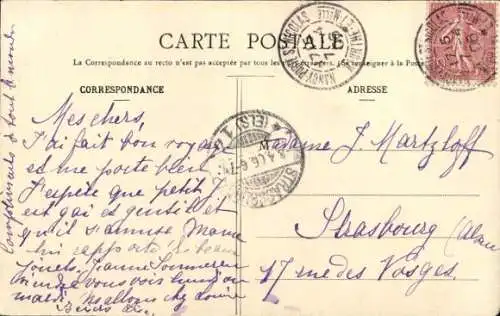 CARTE POSTALE
La Correspondance au recto n'est pas acceptée par tous les pays étrangers. (Se renseigner à la Poste
CORRESPONDANCE
ADRESSE
Mes chers,
J'ai fait bon voyage
et me porte bien
J'espère que petit J
est gai et gentil et
qu'il s'amuse. Mame
lui rapporte de beaux
jouets. Jeanne
viendra vous voir lundi ou
mardi. Ns allons chez
Compliments à tout le monde
Madame J. Martzloff
Strasbourg (Alsace
17 rue des Vosges.